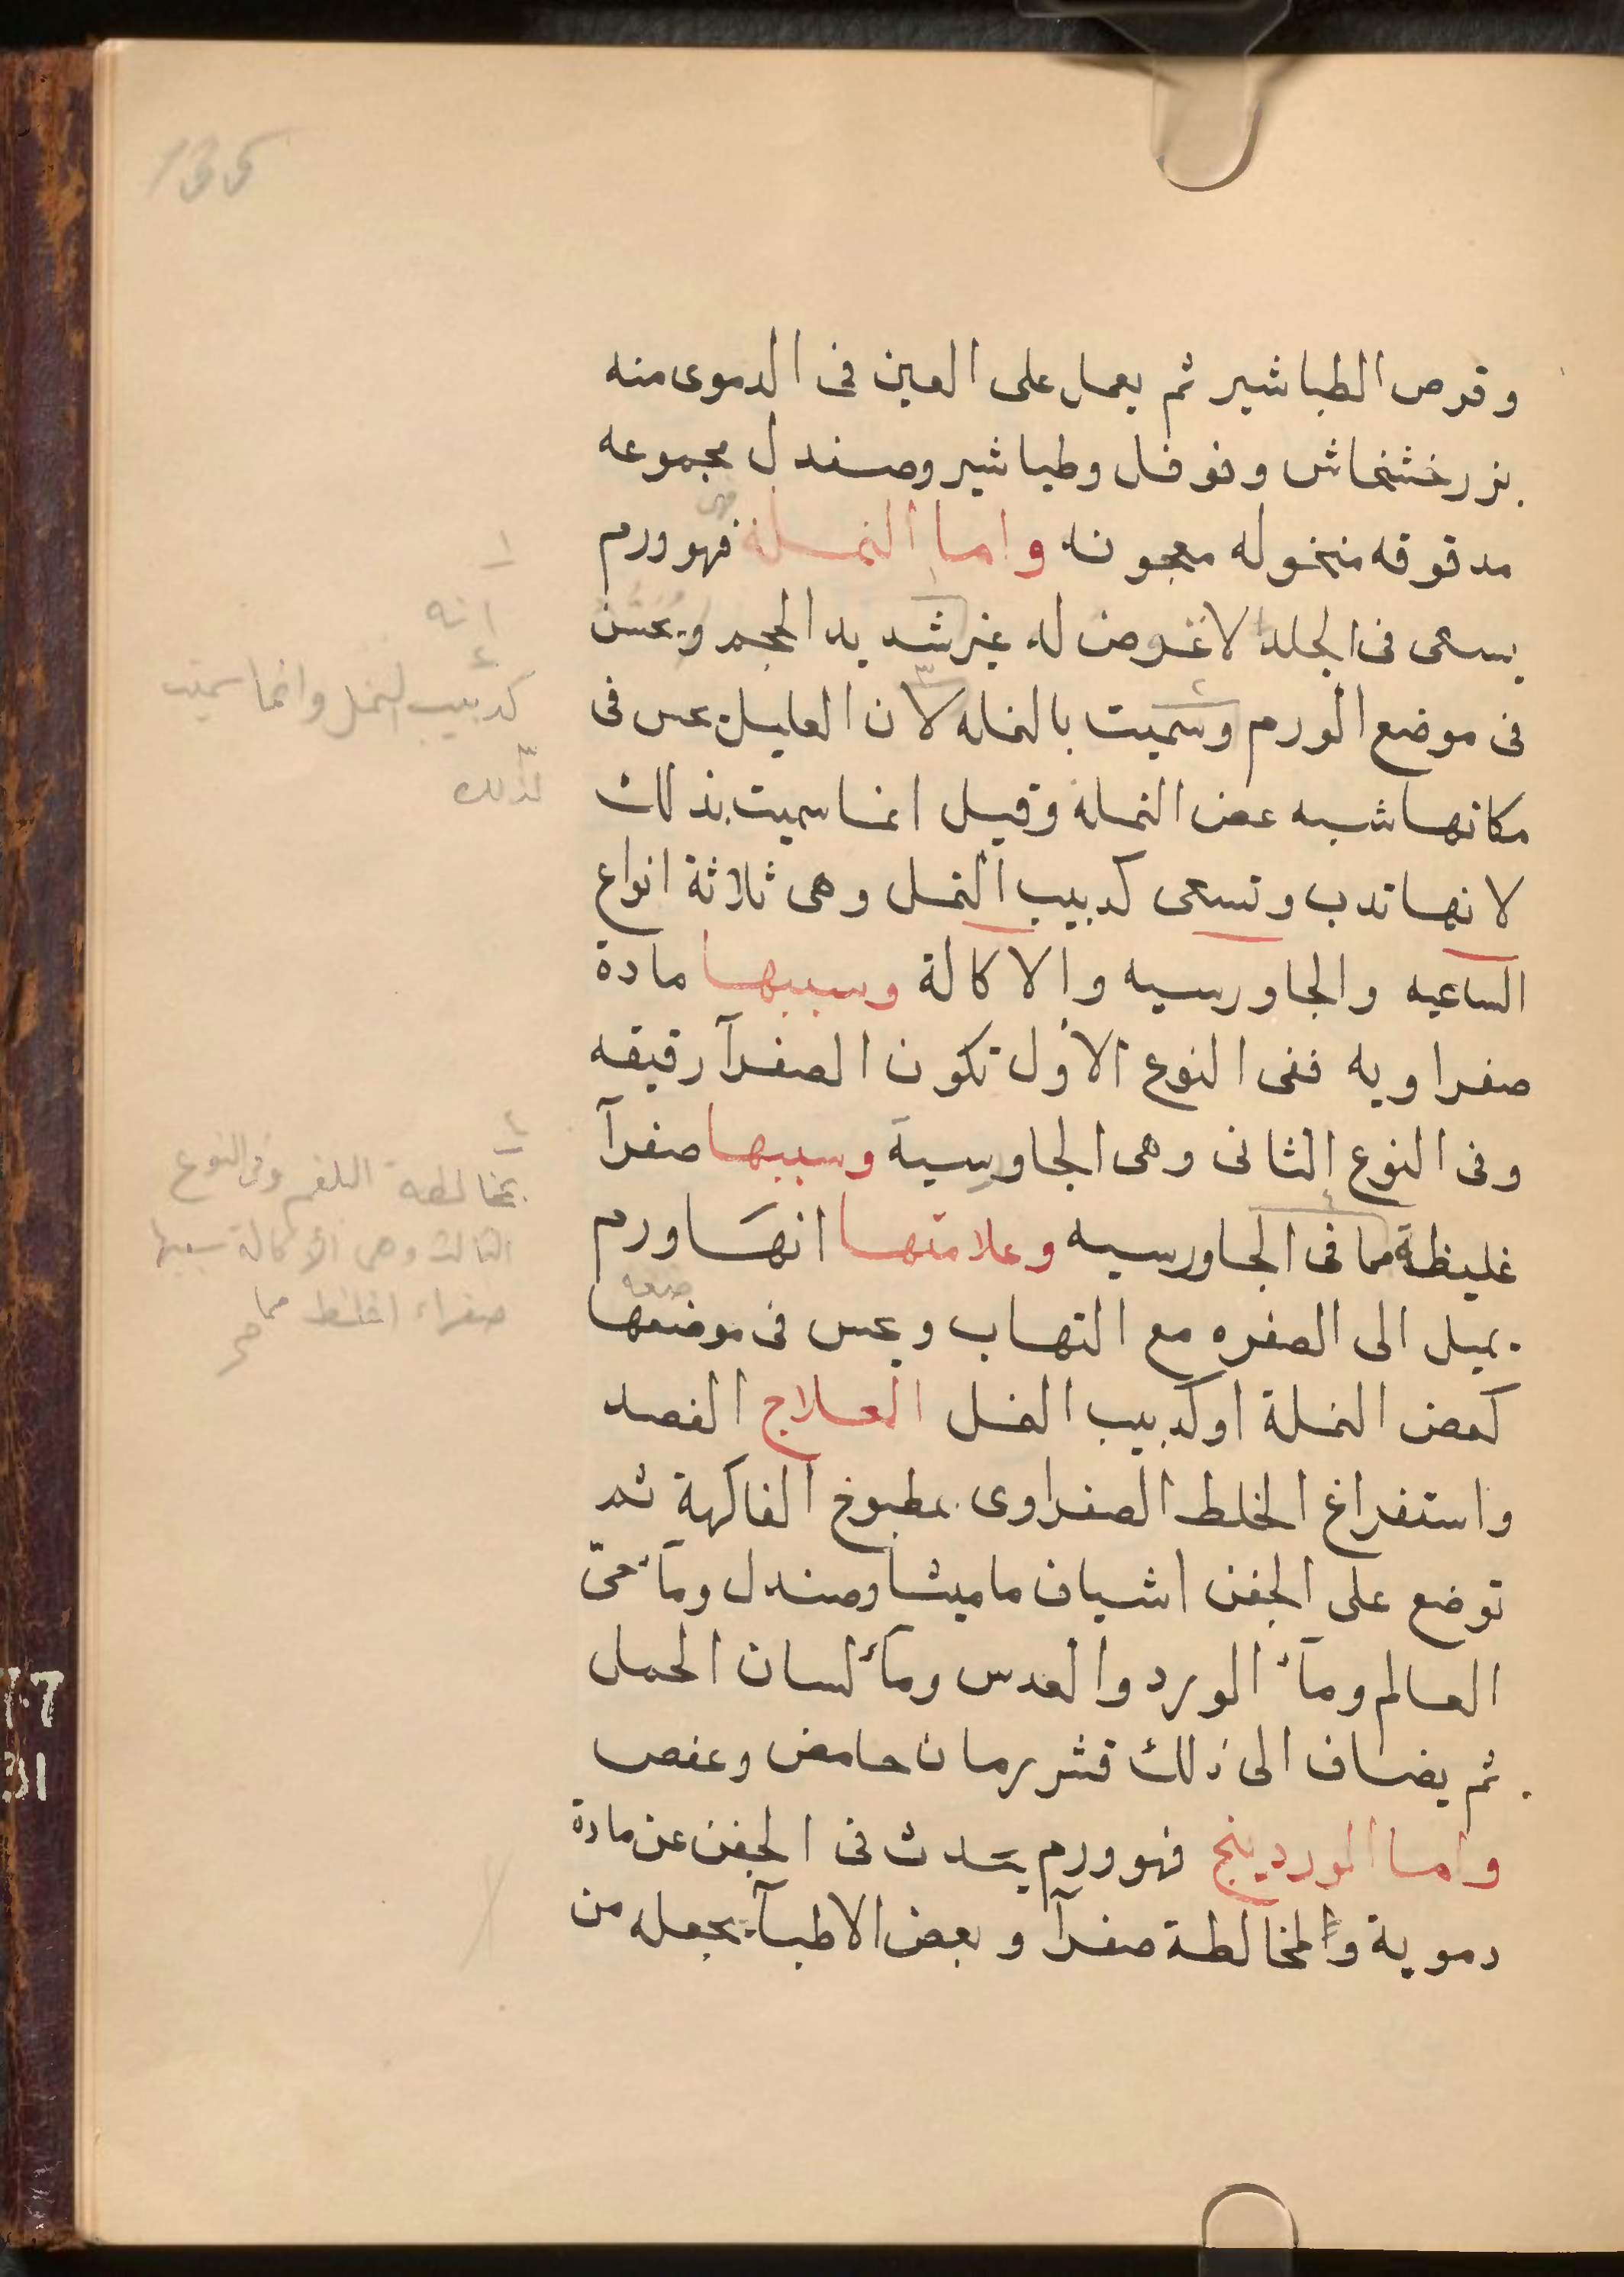 135
وقرص الطباشير ثم يعمل على العين فى الدموى منه
بزرخشخاش وفوفل وطباشير وصندل مجموعه
مدقوقه منخوله معجونه واما النملة فهو ورم
يسعى فى الجلد لا غوص له غير شديد الحجم ويحس
فى موضع الورم وسميت بالنمله لان العليل يحس فى
مكانها شبه عض النملة وقيل انما سميت بذلك
لانها تدب وتسعى كدبيب النمل وهى ثلاثة انواع
الساعيه والجاورسيه والاكالة وسببها مادة
صفراويه ففى النوع الاول تكون الصفرآ رقيقه
وفى النوع الثانى وهى الجاورسية وسببها صفرآ
غليظة مما فى الجاورسيه وعلامتها انها ورم
يميل الى الصفره مع التهاب ويحس فى موضعها
كعض النملة او كدبيب النمل العلاج الفصد
واستفراغ الخلط الصفراوى بمطبوخ الفاكهة ثم
توضع على الجفن اشياف ماميثا وصندل ومآء حىّ
العالم ومآء الورد والعدس ومآء لسان الحمل
ثم يضاف الى ذلك قشر رمان حامض وعفص
واما الوردينج فهو ورم يحدث فى الجفن عن مادة
دموية والمخالطة صفرآ وبعض الاطبآ يجعله من
١
انه
٢
كدبيب النمل وانما سميت
٣
لذلك
٤
بمخالطة البلغم وفى النوع
الثالث وهى الأكالة سببها
صفراء اغلظ مما